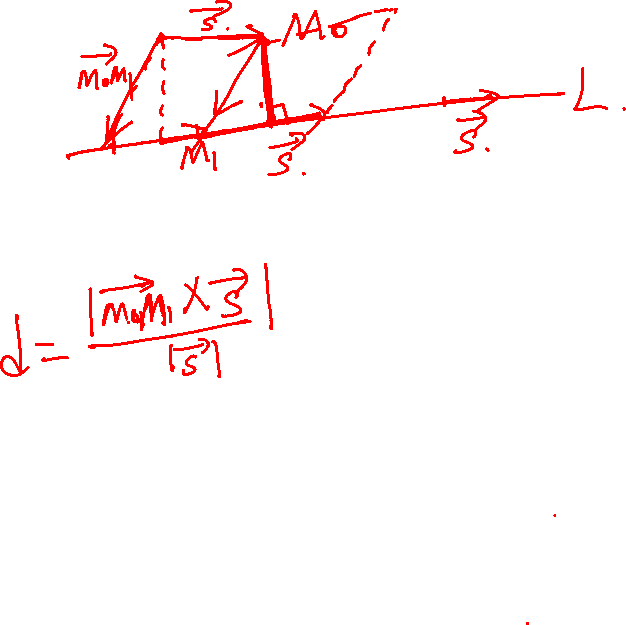 s⃗.
M₀
M₀M₁⃗
L.
M₁
s⃗.
s⃗.
d = |M₀M₁⃗ × s⃗| / |s⃗|